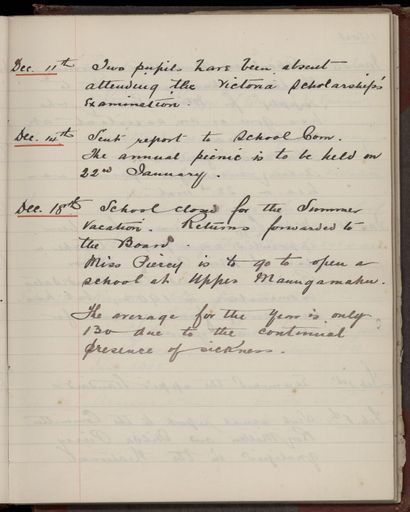 Dec. 11th Two pupils have been absent
attending the Victoria Scholarship's
Examination.
Dec. 14th Sent report to School Com.
The annual picnic is to be held on
22nd January.
Dec. 18th School closed for the Summer
Vacation. Returns forwarded to
the Board.
Miss Piercy is to go to open a
school at Upper Maungamahu.
The average for the year is only
130 due to the continual
presence of sickness.